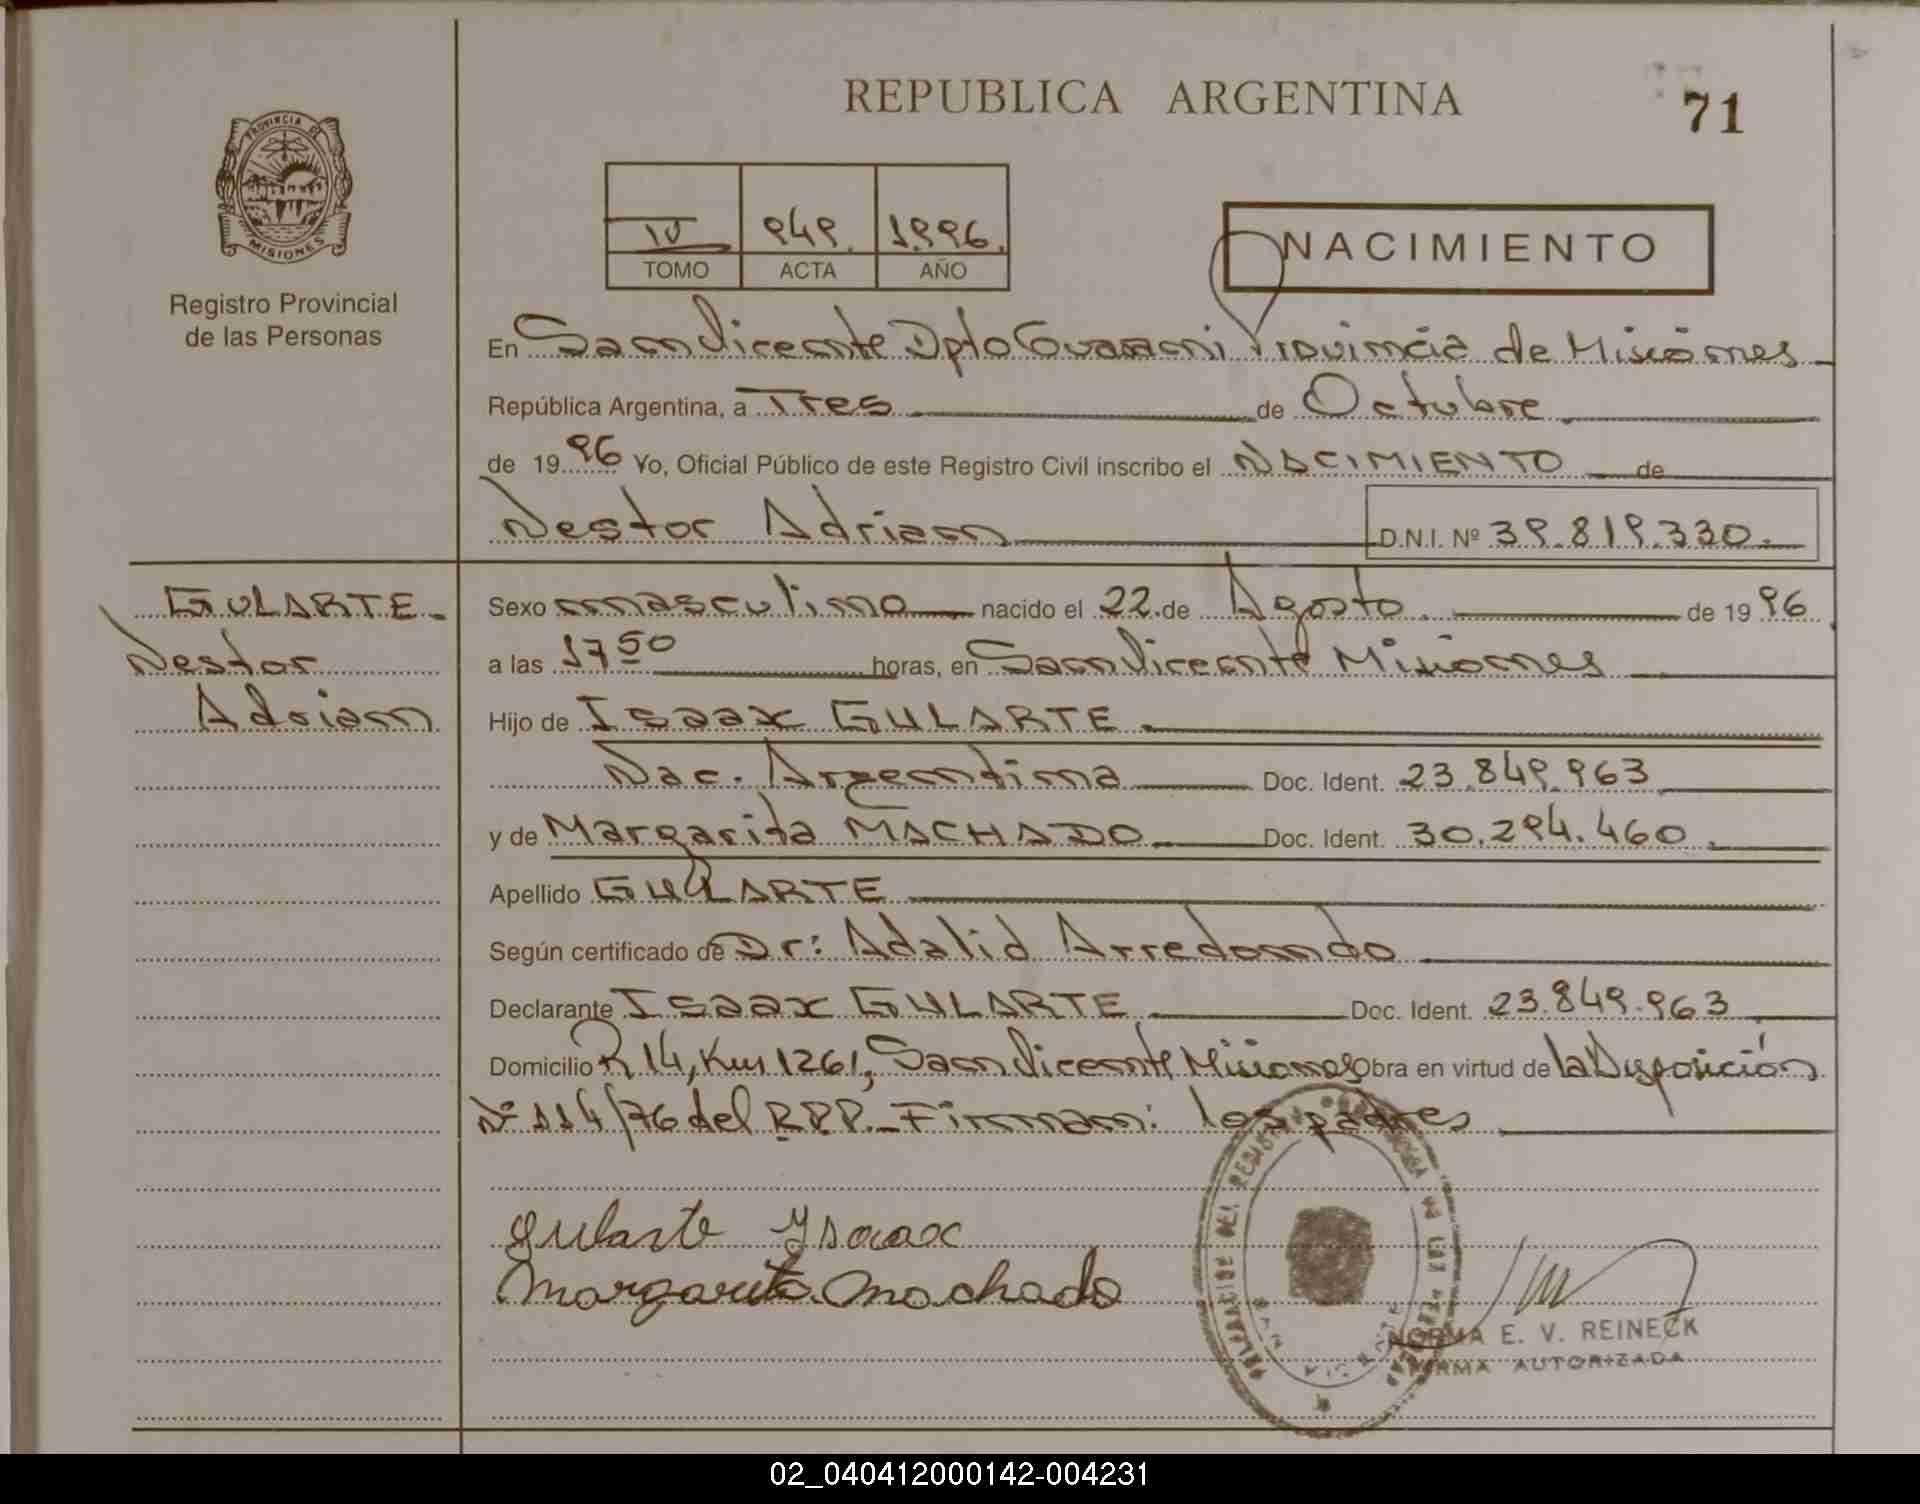 REPUBLICA ARGENTINA
71
PROVINCIA DE
MISIONES
Registro Provincial
de las Personas
IV 949. 1996.
TOMO ACTA AÑO
NACIMIENTO
En San Vicente Dpto Guarani Provincia de Misiones
República Argentina, a Tres de Octubre
de 1996 Yo, Oficial Público de este Registro Civil inscribo el NACIMIENTO de
Nestor Adrian D.N.I. Nº 39.819.330.
GULARTE.
Nestor
Adrian
Sexo masculino nacido el 22 de Agosto. de 1996
a las 17 50 horas, en San Vicente Misiones
Hijo de Isaax GULARTE.
Nac. Argentina Doc. Ident. 23.849.963
y de Margarita MACHADO Doc. Ident. 30.294.460.
Apellido GULARTE
Según certificado de Dr: Adalid Arredondo
Declarante Isaax GULARTE Doc. Ident. 23.849.963
Domicilio R 14, Km 1261, San Vicente Misiones Obra en virtud de la Disposición
Nº 114/76 del R.P.P.- Firman: los padres
Gularte Ysaax
Margarita Machado
NORMA E. V. REINECK
FIRMA AUTORIZADA
02_040412000142-004231